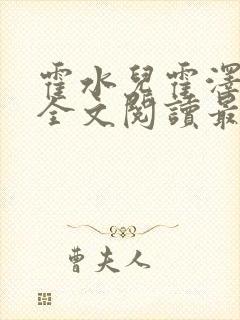 霍水兒霍澤
全文閱讀最
曹夫人